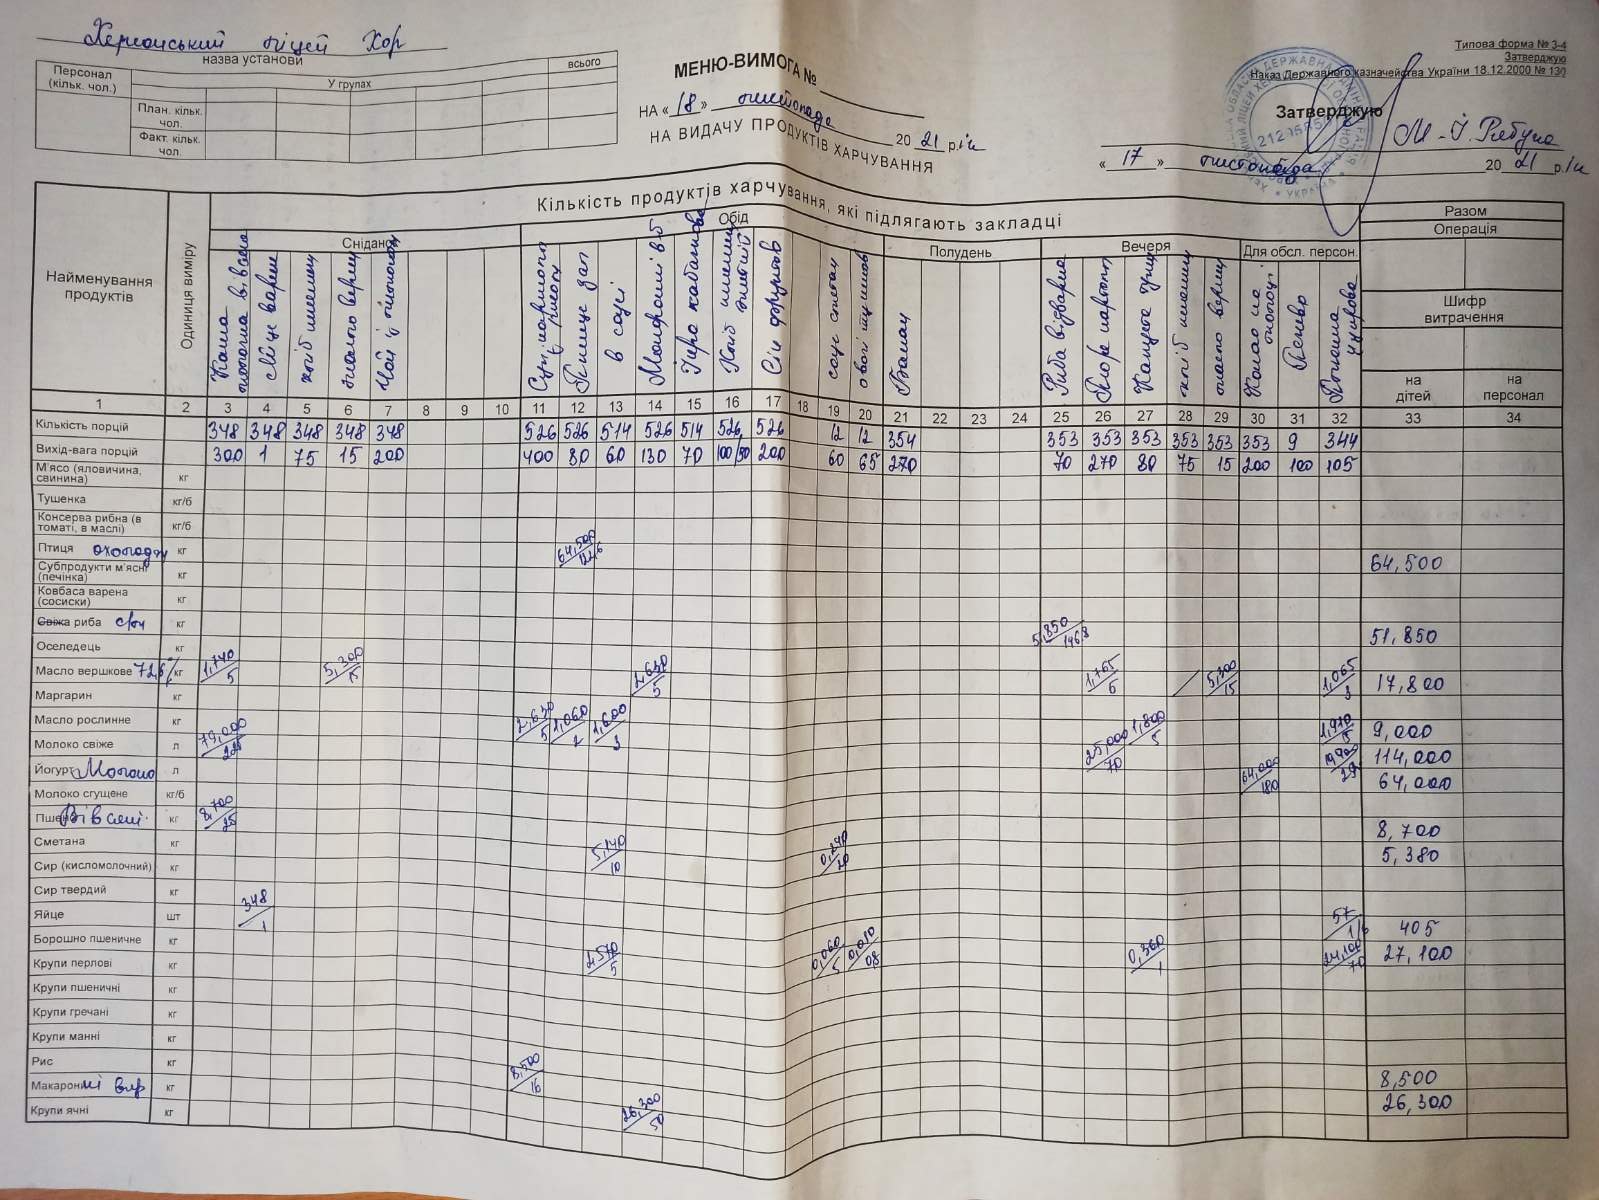 Херсонський ліцей ХОР
назва установи
Персонал (кільк. чол.)
У групах
всього
План. кільк. чол.
Факт. кільк. чол.
МЕНЮ-ВИМОГА №
НА « 18 » листопада 20 21 р.
НА ВИДАЧУ ПРОДУКТІВ ХАРЧУВАННЯ
Типова форма № З-4
Затверджую
Наказ Державного казначейства України 18.12.2000 № 130
Затверджую
« 17 » листопада 20 21 р.
Найменування продуктів
Одиниця виміру
Кількість продуктів харчування, які підлягають закладці
Разом
Сніданок
Обід
Полудень
Вечеря
Для обсл. персон.
Операція
Шифр витрачення
на дітей
на персонал
Каша молочна вівсяна
Яйце варене
хліб пшен
масло верш
Чай
в соусі
Макаронні в-б
Ікра кабачкова
Хліб
Сік фруктов
соус сметан
овочі
Банан
Риба відварна
Пюре картоп
Капуста туш
хліб
масло верш
Какао на молоці
Печиво
цукрова
1 2 3 4 5 6 7 8 9 10 11 12 13 14 15 16 17 18 19 20 21 22 23 24 25 26 27 28 29 30 31 32 33 34
Кількість порцій 348 348 348 348 348 526 526 514 526 514 526 526 12 12 354 353 353 353 353 353 353 9 344
Вихід-вага порцій 300 1 75 15 200 400 80 60 130 70 100/50 200 60 65 270 70 270 80 75 15 200 100 105
М'ясо (яловичина, свинина) кг
Тушенка кг/б
Консерва рибна (в томаті, в маслі) кг/б
Птиця охолодж кг 64,500/122,6 64,500
Субпродукти м'ясні (печінка) кг
Ковбаса варена (сосиски) кг
Свіжа риба с/м кг 51,850/146,8 51,850
Оселедець кг
Масло вершкове 72,6% кг 1,740/5 5,300/15 2,630/5 1,765/6 5,300/15 1,065/3 17,800
Маргарин кг
Масло рослинне кг 2,630/5 1,060/2 1,600/3 1,800/5 1,910/5 9,000
Молоко свіже л 79,000/225 25,000/70 114,000
Йогурт Молоко л 64,000/180 64,000
Молоко сгущене кг/б
Вівсяні кг 8,700/25 8,700
Сметана кг 5,140/10 0,240/20 5,380
Сир (кисломолочний) кг
Сир твердий кг
Яйце шт 348/1 57/1/6 405
Борошно пшеничне кг 2,570/5 0,060/5 0,010/0,8 0,360/1 24,100/70 27,100
Крупи перлові кг
Крупи пшеничні кг
Крупи гречані кг
Крупи манні кг
Рис кг 8,500/16 8,500
Макаронні вир кг 26,300/50 26,300
Крупи ячні кг